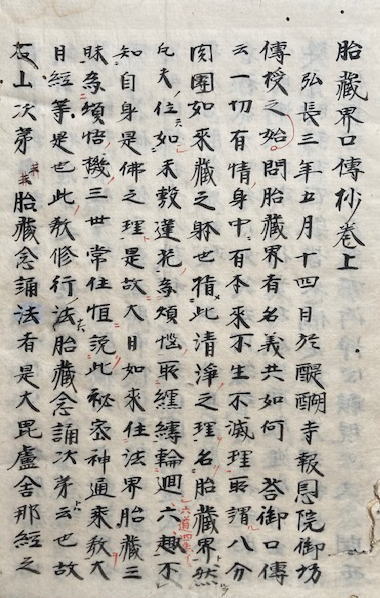 胎藏界口傳抄卷上
弘長三年五月十四日於醍醐寺報恩院御坊
傳授之始問胎藏界有名義共如何 答御口傳
云一切有情身中有本來不生不滅理所謂八分
肉團如來藏之躰也指此清淨之理名胎藏界然
凡夫位如來教蓮花為煩惱所纏縛輪迴六趣不
六道四生
知自身是佛之理是故大日如來住法界胎藏三
昧為煩悟機三世常住恒說此祕密神通乘教大
日經等是也此教修行法胎藏念誦次第云也故
石山次第 胎藏念誦法者是大毘盧舍那經之